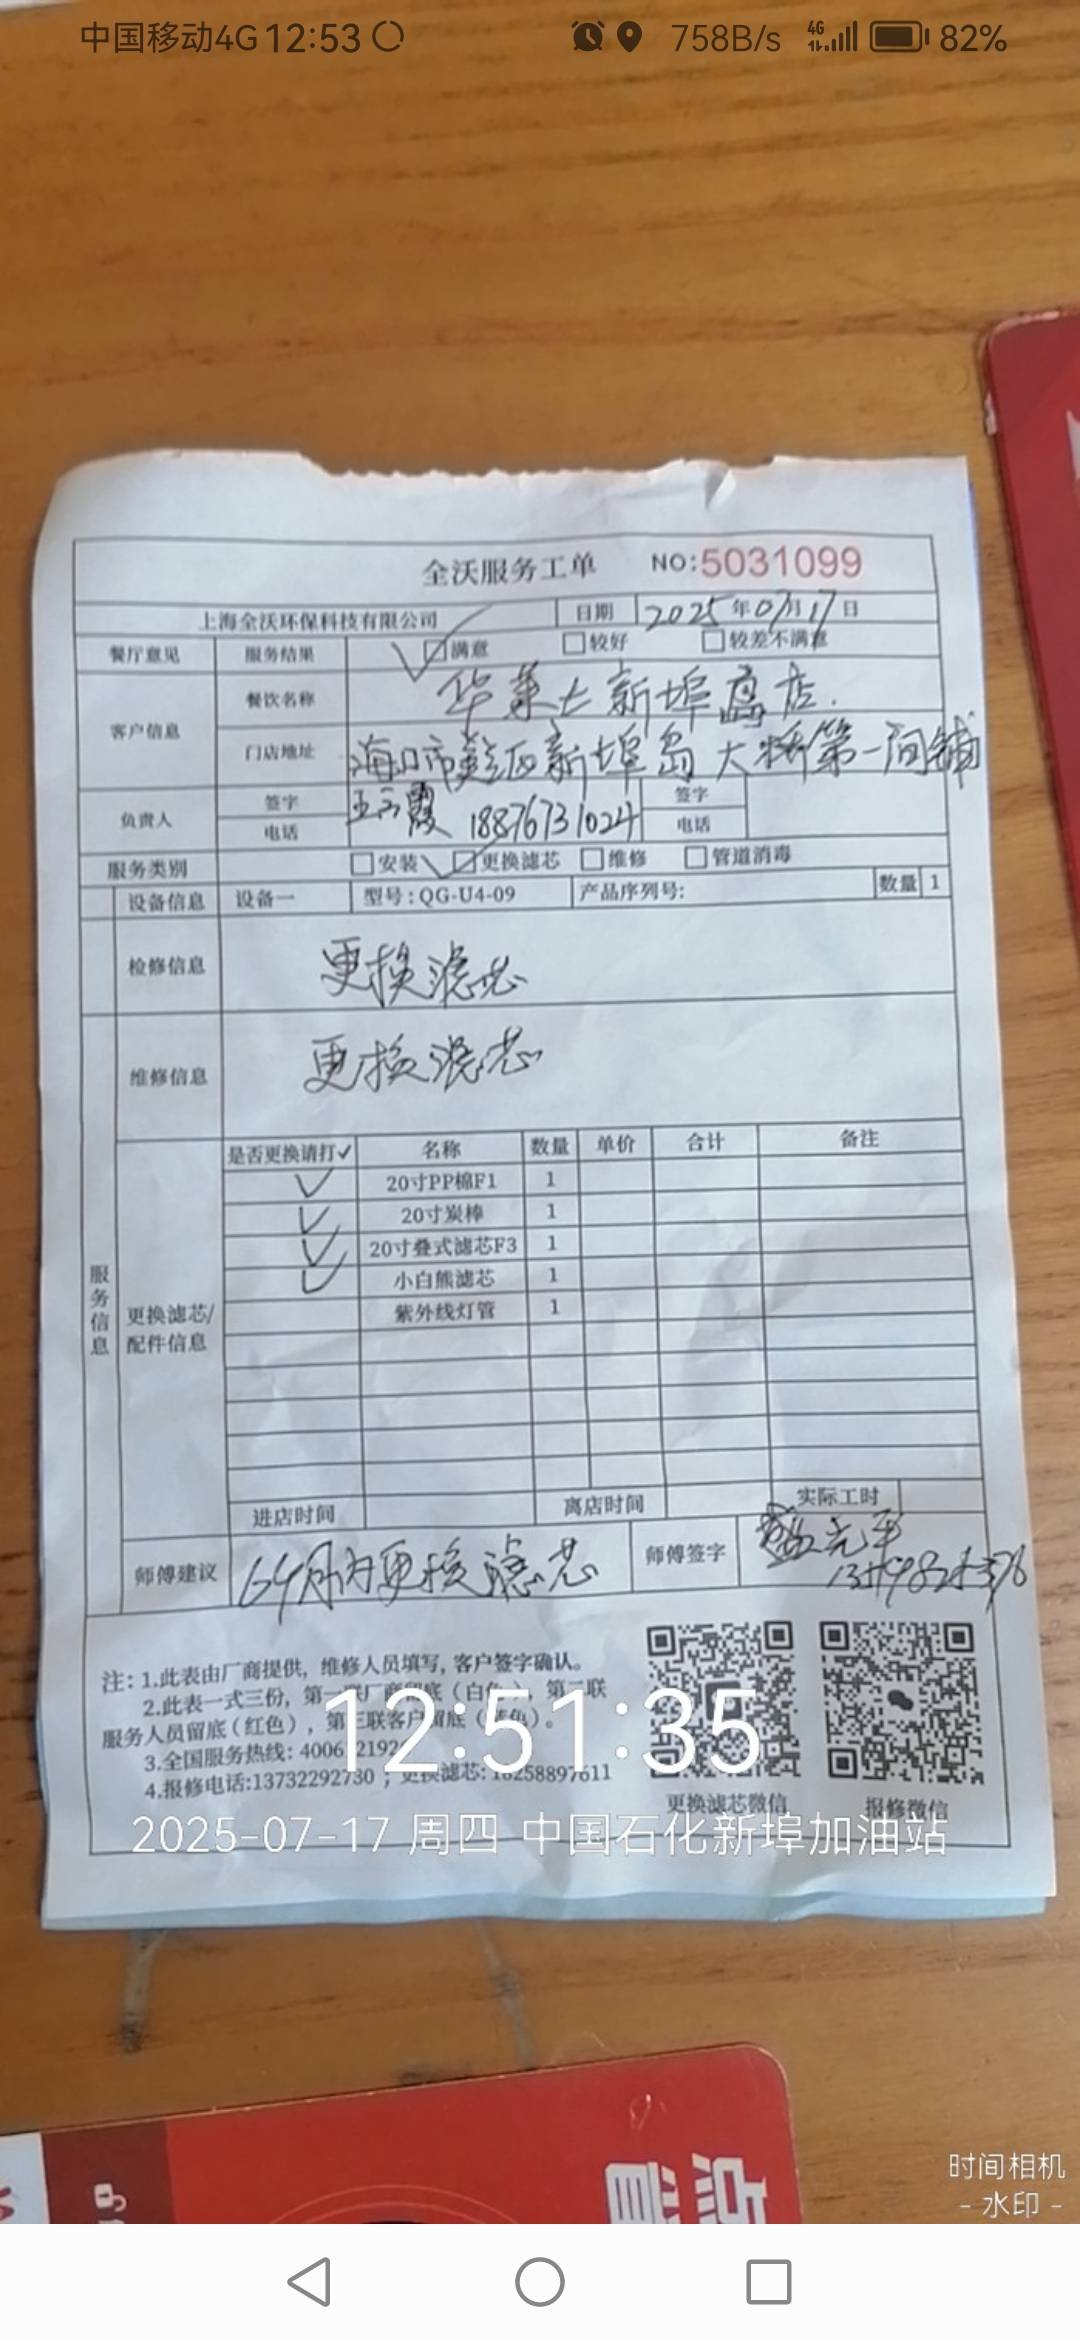 中国移动4G 12:53 758B/s 4G 82%
全沃服务工单 NO:5031099
上海全沃环保科技有限公司 日期 2025年07月17日
餐厅意见 服务结果 满意 较好 较差不满意
客户信息 餐饮名称 华莱士新埠岛店.
门店地址 海口市 新埠岛大桥第一间铺
负责人 签字 王云霞 签字
电话 18876731024 电话
服务类别 安装 更换滤芯 维修 管道消毒
设备信息 设备一 型号:QG-U4-09 产品序列号: 数量 1
检修信息 更换滤芯
维修信息 更换滤芯
服务信息
更换滤芯/
配件信息
是否更换请打✓ 名称 数量 单价 合计 备注
✓ 20寸PP棉F1 1
✓ 20寸炭棒 1
✓ 20寸叠式滤芯F3 1
✓ 小白熊滤芯 1
紫外线灯管 1
进店时间 离店时间 实际工时
师傅建议 6个月内更换滤芯 师傅签字
注: 1.此表由厂商提供, 维修人员填写, 客户签字确认。
2.此表一式三份, 第一联厂商留底(白色), 第二联
服务人员留底(红色), 第三联客户留底(蓝色)。
3.全国服务热线: 4006
4.报修电话:13732292730 ; 更换滤芯: 18258897611
更换滤芯微信 报修微信
12:51:35
2025-07-17 周四 中国石化新埠加油站
时间相机
- 水印 -